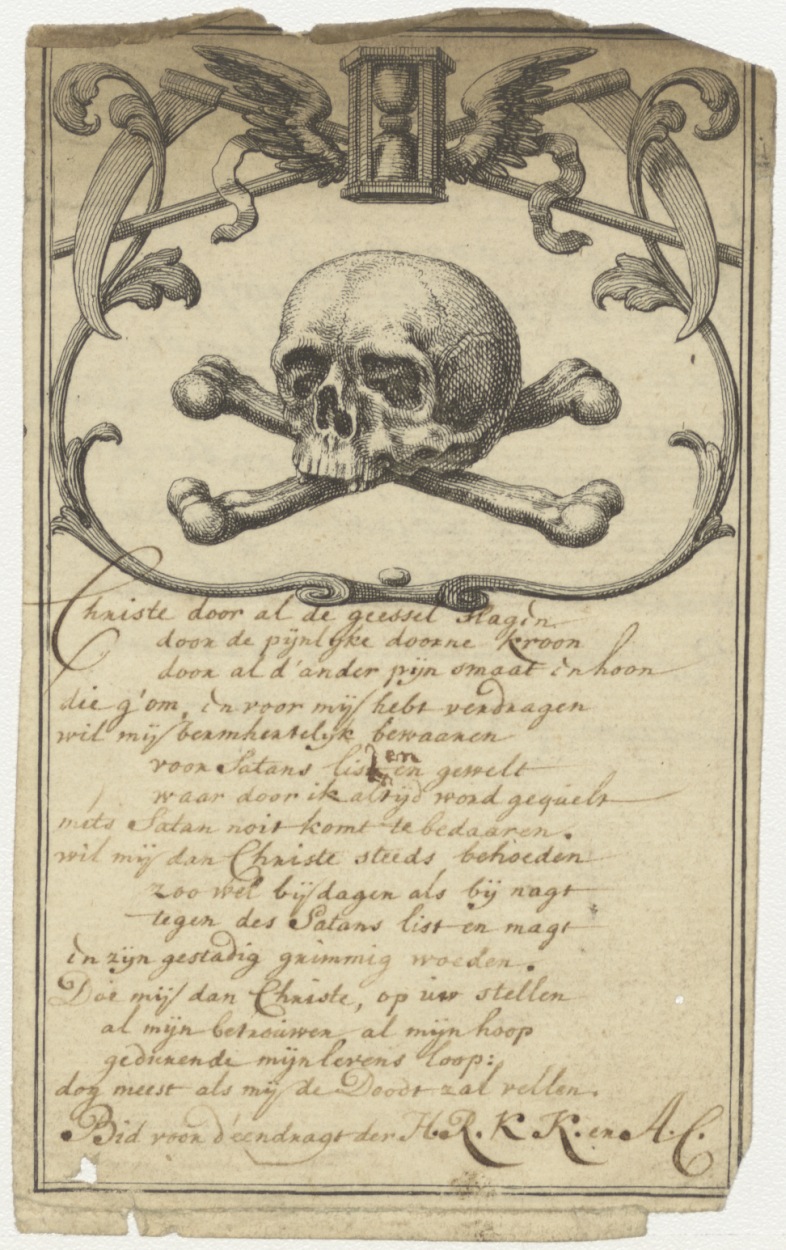 Christe door al de geessel slagen
door de pijnlijke doorne kroon
door al d'ander pijn smaat en hoon
die g'om, en voor mij hebt verdragen
wil mij bermhertelijk bewaaren
voor Satans list en gewelt
waar door ik altijd word gequelt
mits Satan noit komt te bedaaren.
wil mij dan Christe steeds behoeden
zoo wel bij dagen als bij nagt
tegen des Satans list en magt
en zijn gestadig grimmig woeden.
Doe mij dan Christe, op uw stellen
al mijn betrouwen al mijn hoop
gedurende mijn levens loop:
dog meest als mij de Doodt zal vellen.
Bid voor d'eendragt der H. R. K. K. en A. C.